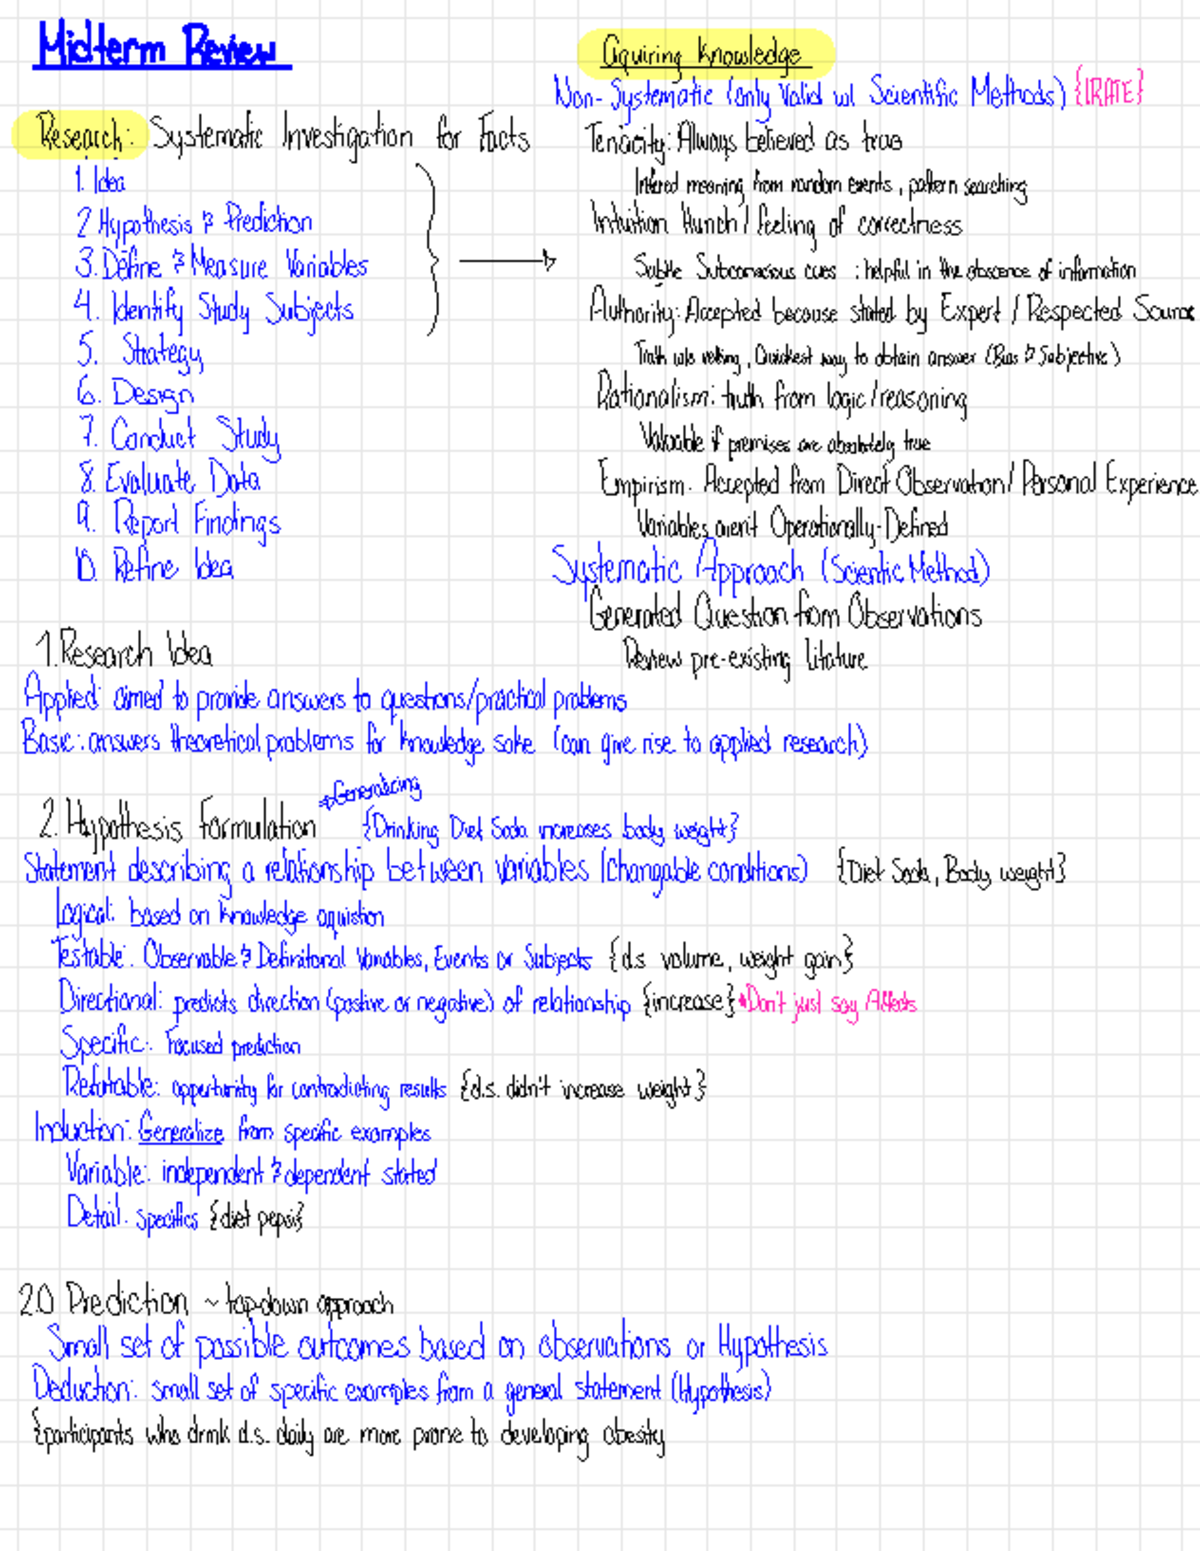 Midterm Review
Research: Systematic Investigation for Facts
1. Idea
2 Hypothesis & Prediction
3. Define & Measure Variables
4. Identify Study Subjects
5. Strategy
6. Design
7. Conduct Study
8. Evaluate Data
9. Report Findings
10. Refine Idea
Aquiring Knowledge
Non-Systematic (only Valid w/ Scientific Methods) {IRATE}
Tenacity: Always believed as true
Infered meaning from random events, pattern searching
Intuition Hunch / feeling of correctness
Subtle Subconscious cues : helpful in the abscence of information
Authority: Accepted because stated by Expert / Respected Source
Truth w/o vetting, Quickest way to obtain answer (Bias & Subjective)
Rationalism: truth from logic/reasoning
Valuable if premises are absolutely true
Empirism. Accepted from Direct Observation/ Personal Experience
Variables aren't Operationally-Defined
Systematic Approach (Scientic Method)
Generated Question from Observations
Review pre-existing litature
1. Research Idea
Applied: aimed to provide answers to questions/practical problems
Basic: answers theoretical problems for knowledge sake (can give rise to applied research)
2. Hypothesis Formulation *Generalizing {Drinking Diet Soda increases body weight}
Statement describing a relationship between variables (changable conditions) {Diet Soda, Body weight}
Logical: based on knowledge aquistion
Testable. Observable & Definitonal Variables, Events or Subjects {d.s volume, weight gain}
Directional: predicts direction (postive or negative) of relationship {increase} *Don't just say Affects
Specific: Focused prediction
Refutable: opportunity for contradicting results {d.s. didn't increase weight}
Induction: Generalize from specific examples
Variable: independent & dependent stated
Detail. specifics {diet pepsi}
2.0 Prediction ~ top-down approach
Small set of possible outcomes based on observations or Hypothesis
Deduction: small set of specific examples from a general statement (Hypothesis)
{participants who drink d.s. daily are more prone to developing obesity